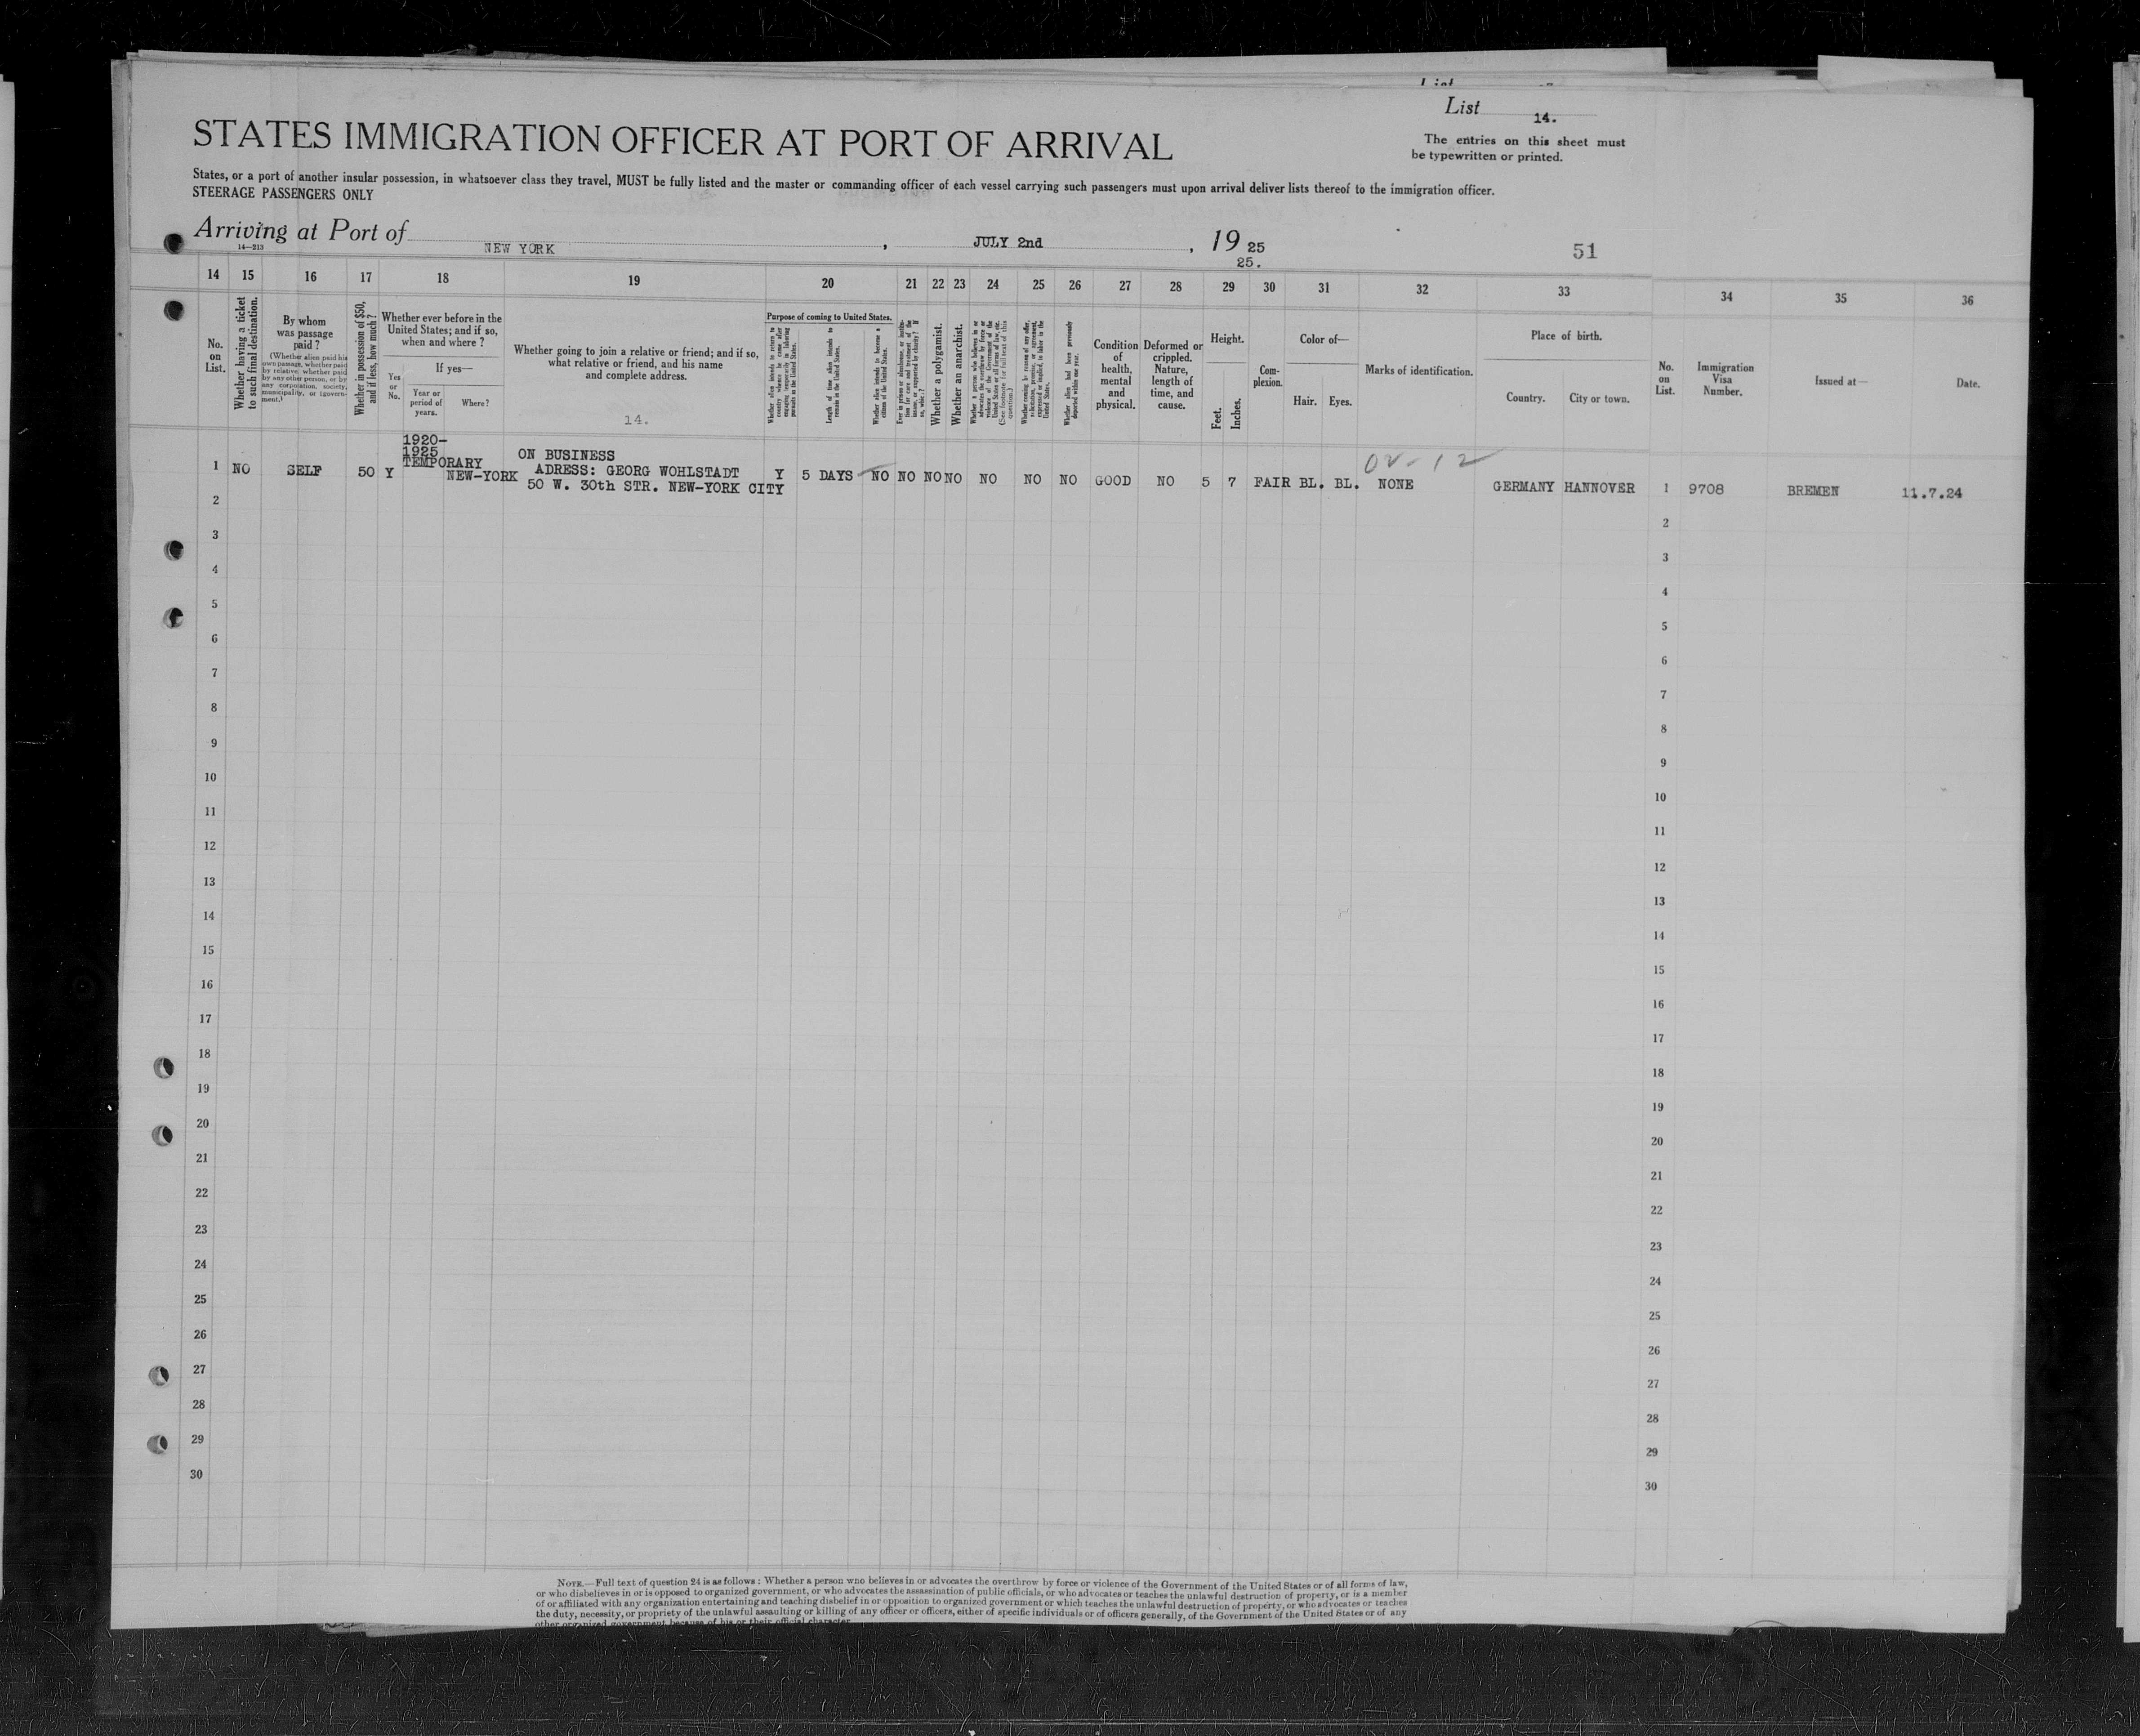 List 14.
The entries on this sheet must
be typewritten or printed.
STATES IMMIGRATION OFFICER AT PORT OF ARRIVAL
States, or a port of another insular possession, in whatsoever class they travel, MUST be fully listed and the master or commanding officer of each vessel carrying such passengers must upon arrival deliver lists thereof to the immigration officer.
STEERAGE PASSENGERS ONLY
Arriving at Port of NEW YORK, JULY 2nd, 19 25
14—213
25.
51
14 15 16 17 18 19 20 21 22 23 24 25 26 27 28 29 30 31 32 33 34 35 36
No. on List.
Whether having a ticket to such final destination.
By whom was passage paid?
(Whether alien paid his own passage, whether paid by relative, whether paid by any other person, or by any corporation, society, municipality, or government.)
Whether in possession of $50, and if less, how much?
Whether ever before in the United States; and if so, when and where?
Yes or No.
If yes—
Year or period of years.
Where?
Whether going to join a relative or friend; and if so, what relative or friend, and his name and complete address.
14.
Purpose of coming to United States.
Length of time alien intends to remain in the United States.
Whether alien intends to become a citizen of the United States.
Whether a polygamist.
Whether an anarchist.
Whether alien had been previously deported within one year.
Condition of health, mental and physical.
Deformed or crippled. Nature, length of time, and cause.
Height.
Feet.
Inches.
Complexion.
Color of—
Hair.
Eyes.
Marks of identification.
Place of birth.
Country.
City or town.
No. on List.
Immigration Visa Number.
Issued at—
Date.
1920-
1925
TEMPORARY
ON BUSINESS
1 NO SELF 50 Y NEW-YORK ADRESS: GEORG WOHLSTADT Y 5 DAYS NO NO NO NO NO NO NO GOOD NO 5 7 FAIR BL. BL. NONE GERMANY HANNOVER 1 9708 BREMEN 11.7.24
50 W. 30th STR. NEW-YORK CITY
2 2
3 3
4 4
5 5
6 6
7 7
8 8
9 9
10 10
11 11
12 12
13 13
14 14
15 15
16 16
17 17
18 18
19 19
20 20
21 21
22 22
23 23
24 24
25 25
26 26
27 27
28 28
29 29
30 30
NOTE.—Full text of question 24 is as follows: Whether a person who believes in or advocates the overthrow by force or violence of the Government of the United States or of all forms of law,
or who disbelieves in or is opposed to organized government, or who advocates the assassination of public officials, or who advocates or teaches the unlawful destruction of property, or is a member
of or affiliated with any organization entertaining and teaching disbelief in or opposition to organized government or which teaches the unlawful destruction of property, or who advocates or teaches
the duty, necessity, or propriety of the unlawful assaulting or killing of any officer or officers, either of specific individuals or of officers generally, of the Government of the United States or of any
other organized government because of his or their official character.